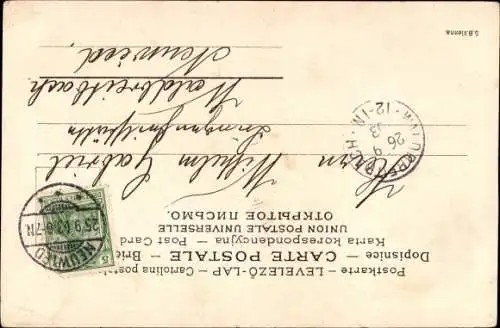 Postkarte - LEVELEZŐ-LAP - Cartolina postale
Dopisnice - CARTE POSTALE - Brie
Karta korespondencyjna - Post Card
UNION POSTALE UNIVERSELLE
ОТКРЫТОЕ ПИСЬМО.
NEUWIED
25.9.03.6-7N
5
WALDBREITBACH
26 9
03
12-1N
Herrn Wilhelm Gabriel
Waldbreitbach
Neuwied.
S.B.Vienna.